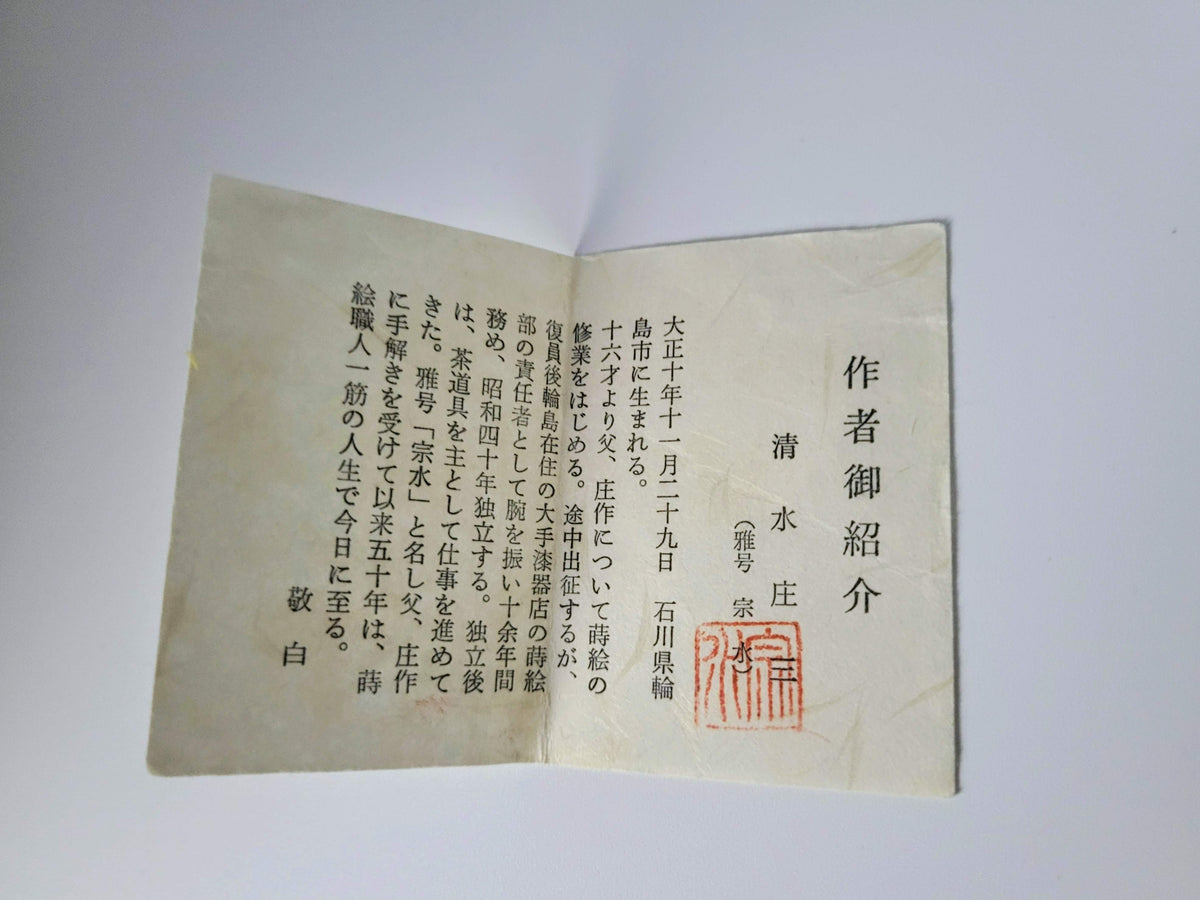 作者御紹介
清水庄三
（雅号 宗水）
宗水
大正十年十一月二十九日 石川県輪
島市に生まれる。
十六才より父、庄作について蒔絵の
修業をはじめる。途中出征するが、
復員後輪島在住の大手漆器店の蒔絵
部の責任者として腕を振い十余年間
務め、昭和四十年独立する。独立後
は、茶道具を主として仕事を進めて
きた。雅号「宗水」と名し父、庄作
に手解きを受けて以来五十年は、蒔
絵職人一筋の人生で今日に至る。
敬白